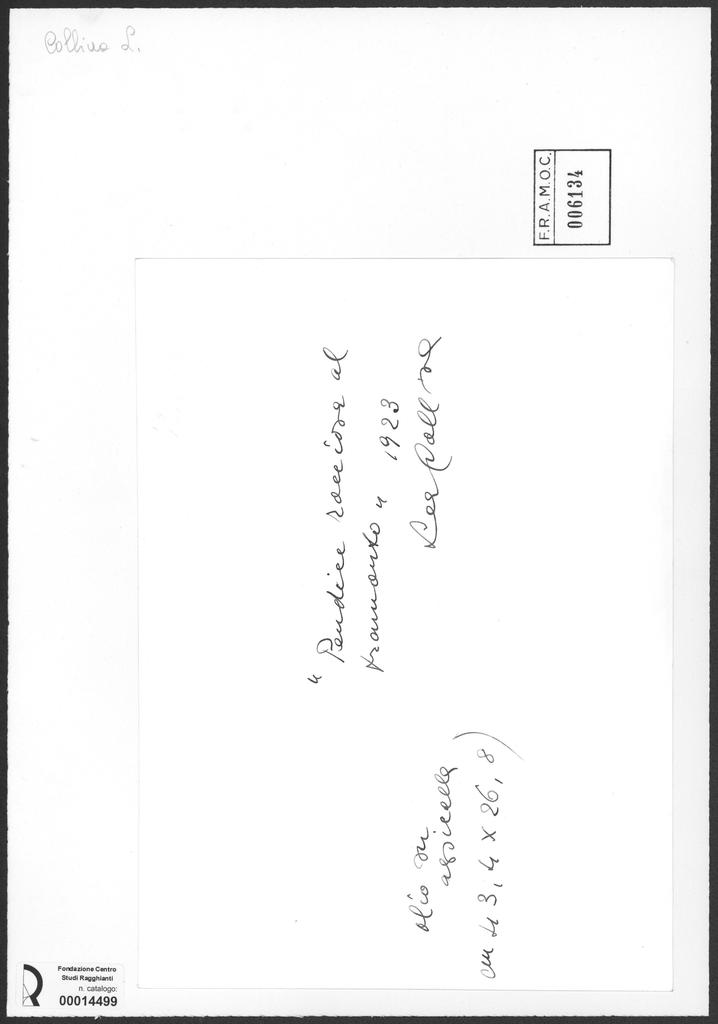 Collina L.
F.R.A.M.O.C.
006134
" Pendice rocciosa al
tramonto " 1923
Lea Collina
olio su
assicella
cm 43,4 x 26,8)
Fondazione Centro
Studi Ragghianti
n. catalogo:
00014499